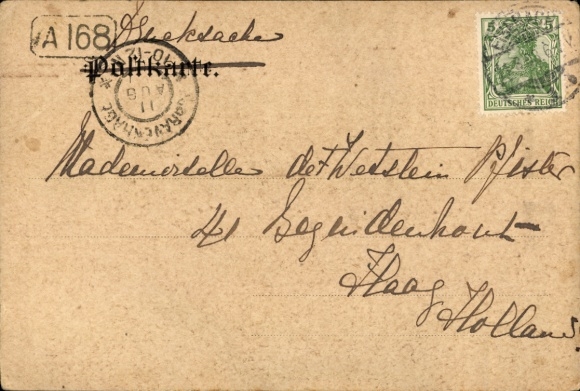 A 168
Drucksache
Postkarte.
'SGRAVENHAGE
11 AUG
10-12
5 5
DEUTSCHES REICH
Mademoiselle de Wetstein Pfister
41 Bezuidenhout
Haag
Holland.